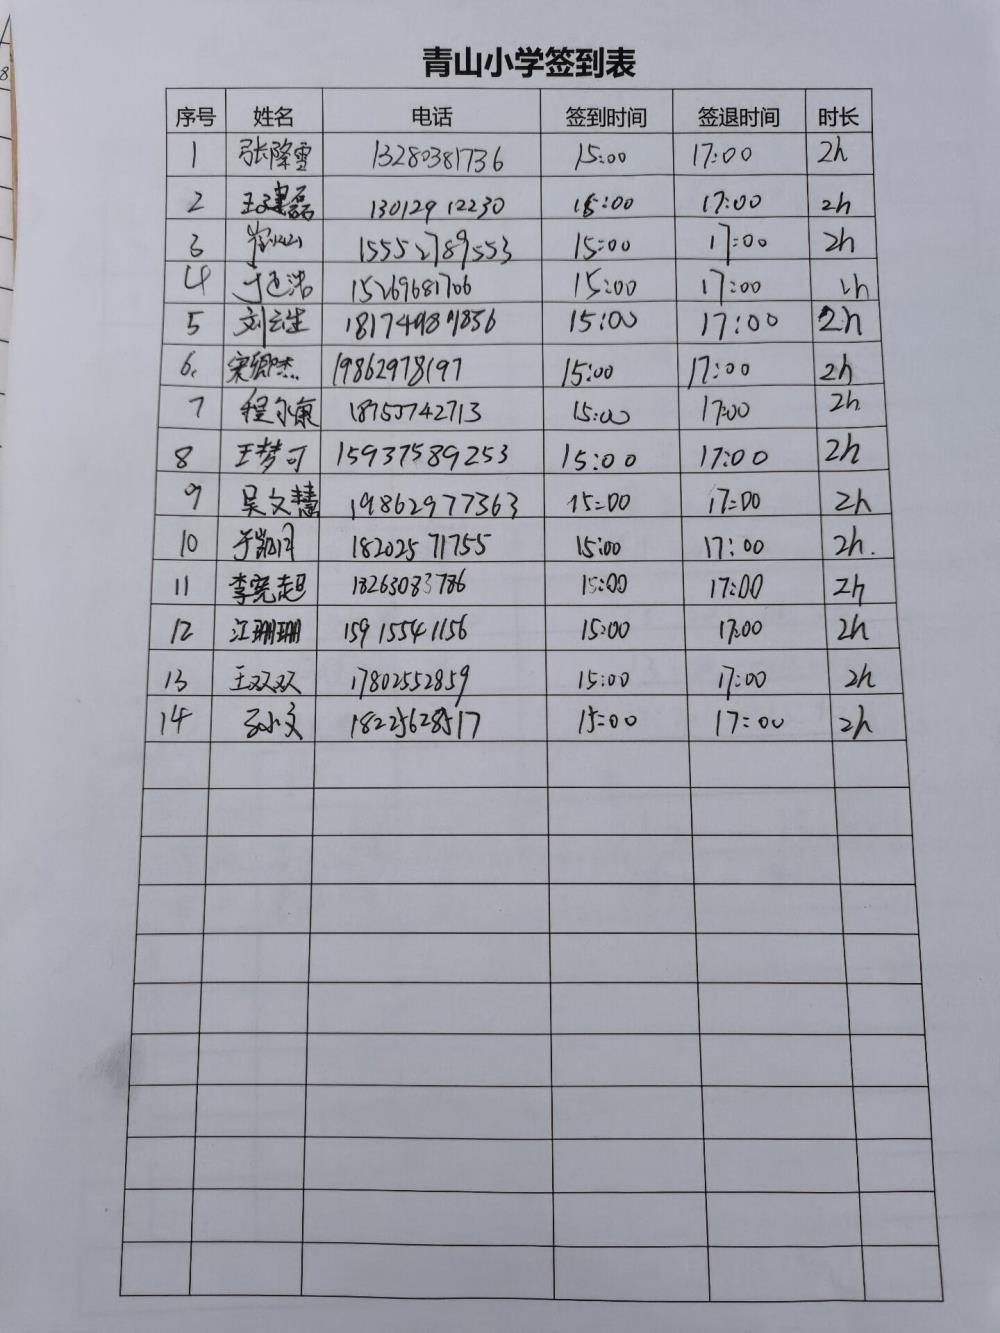 青山小学签到表
序号 姓名 电话 签到时间 签退时间 时长
1 张降雪 13280381736 15:00 17:00 2h
2 王建磊 13012912230 15:00 17:00 2h
3 15552789553 15:00 17:00 2h
4 15269681706 15:00 17:00 2h
5 刘云生 15:00 17:00 2h
6. 宋卿杰 19862978197 15:00 17:00 2h
7 程尔康 18753742713 15:00 17:00 2h
8 王梦可 15937589253 15:00 17:00 2h
9 吴文慧 19862977363 15:00 17:00 2h
10 于凯月 18202571755 15:00 17:00 2h.
11 李晓超 18263083786 15:00 17:00 2h
12 江珊珊 15915541156 15:00 17:00 2h
13 王双双 17802552859 15:00 17:00 2h
14 孙文 18225628517 15:00 17:00 2h
8